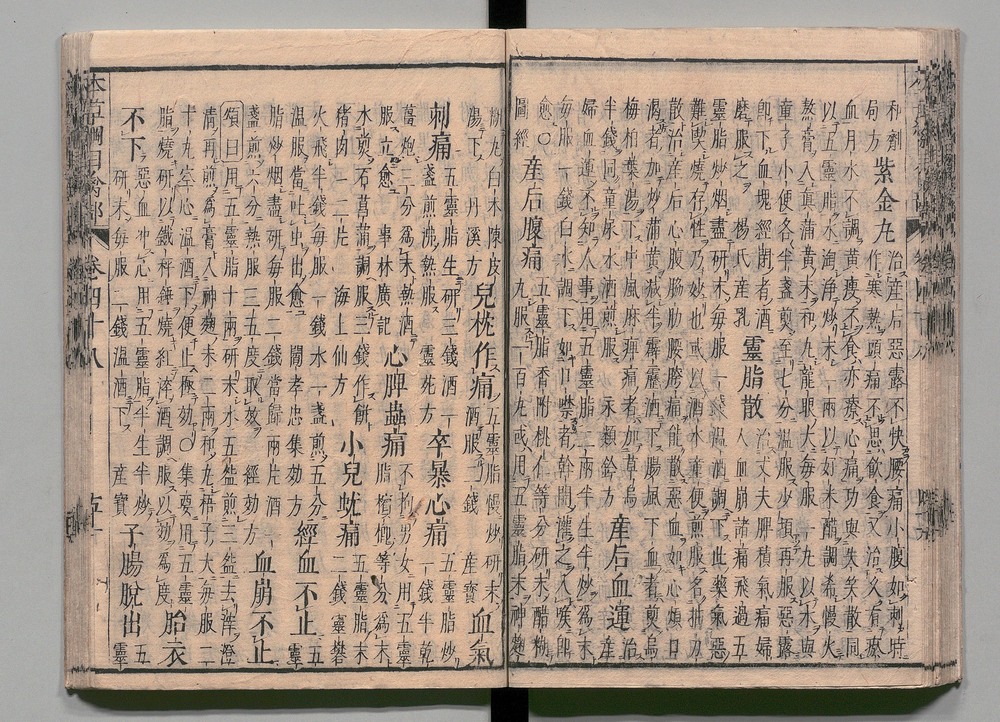 和劑局方
紫金丸 治産后惡露不快腰痛小腹如刺時
作寒熱頭痛不思飲食又治久有瘀
血月水不調黄瘦不食亦療心痛功與失笑散同
以五靈脂水淘浄炒末一兩以好米醋調稀慢火
熬膏入真蒲黄末和丸龍眼大每服一丸以水與
童子小便各半盞煎至七分温服少頃再服惡露
即下血塊經閉者酒
磨服之 楊氏産乳
靈脂散 治丈夫脾積氣痛婦
人血崩諸痛飛過五
靈脂炒烟盡研末每服一錢温酒調下此藥氣惡
難喫燒存性乃妙也或以酒水童便煎服名抽刀
散治産后心腹脇肋腰胯痛能散惡血如心煩口
渴者加炒蒲黄減半霹靂酒下腸風下血者煎烏
梅柏葉湯下中風麻痺痛者加草烏
半錢同童尿水酒煎服 永類鈐方
産后血運 治産
婦血運不知人事用五靈脂二兩半生半炒為末
每服一錢白水調下如口噤者斡開灌之入喉即
愈○圖經
産后腹痛 五靈脂香附桃仁等分研末醋糊
丸服一百丸或用五靈脂末神麴
糊丸白朮陳皮
湯下 丹溪方
兒枕作痛 五靈脂慢炒研末
酒服一錢 産寶
血氣
刺痛 五靈脂生研三錢酒一
盞煎沸熱服 靈苑方
卒暴心痛 五靈脂炒
一錢半乾
薑炮三分為末熱酒
服立愈 事林廣記
心脾蟲痛 不拘男女用五靈
脂檳榔等分為末
水煎石菖蒲調服三錢作餅
猪肉一二片 海上仙方
小兒蚘痛 五靈脂末
二錢靈礬
火飛半錢每服一錢水一盞煎五分
温服當吐出出愈 閻孝忠集効方
經血不止 五
靈
脂炒烟盡研每服二錢當歸兩片酒一
盞煎六分熱服三五度取効 經効方
血崩不止
頌曰用五靈脂十兩研末水五盌煎三盌去滓澄
清再煎為膏入神麴末二兩和丸梧子大每服二
十丸空心温酒下便止極効○集要用五靈
脂燒研鐵秤錘燒紅淬酒調服以効為度
胎衣
不下 惡血冲心用五靈脂半生半炒
研末每服二錢温酒下 産寶
子腸脱出 五
靈
本草綱目禽部 卷四十八 五十一